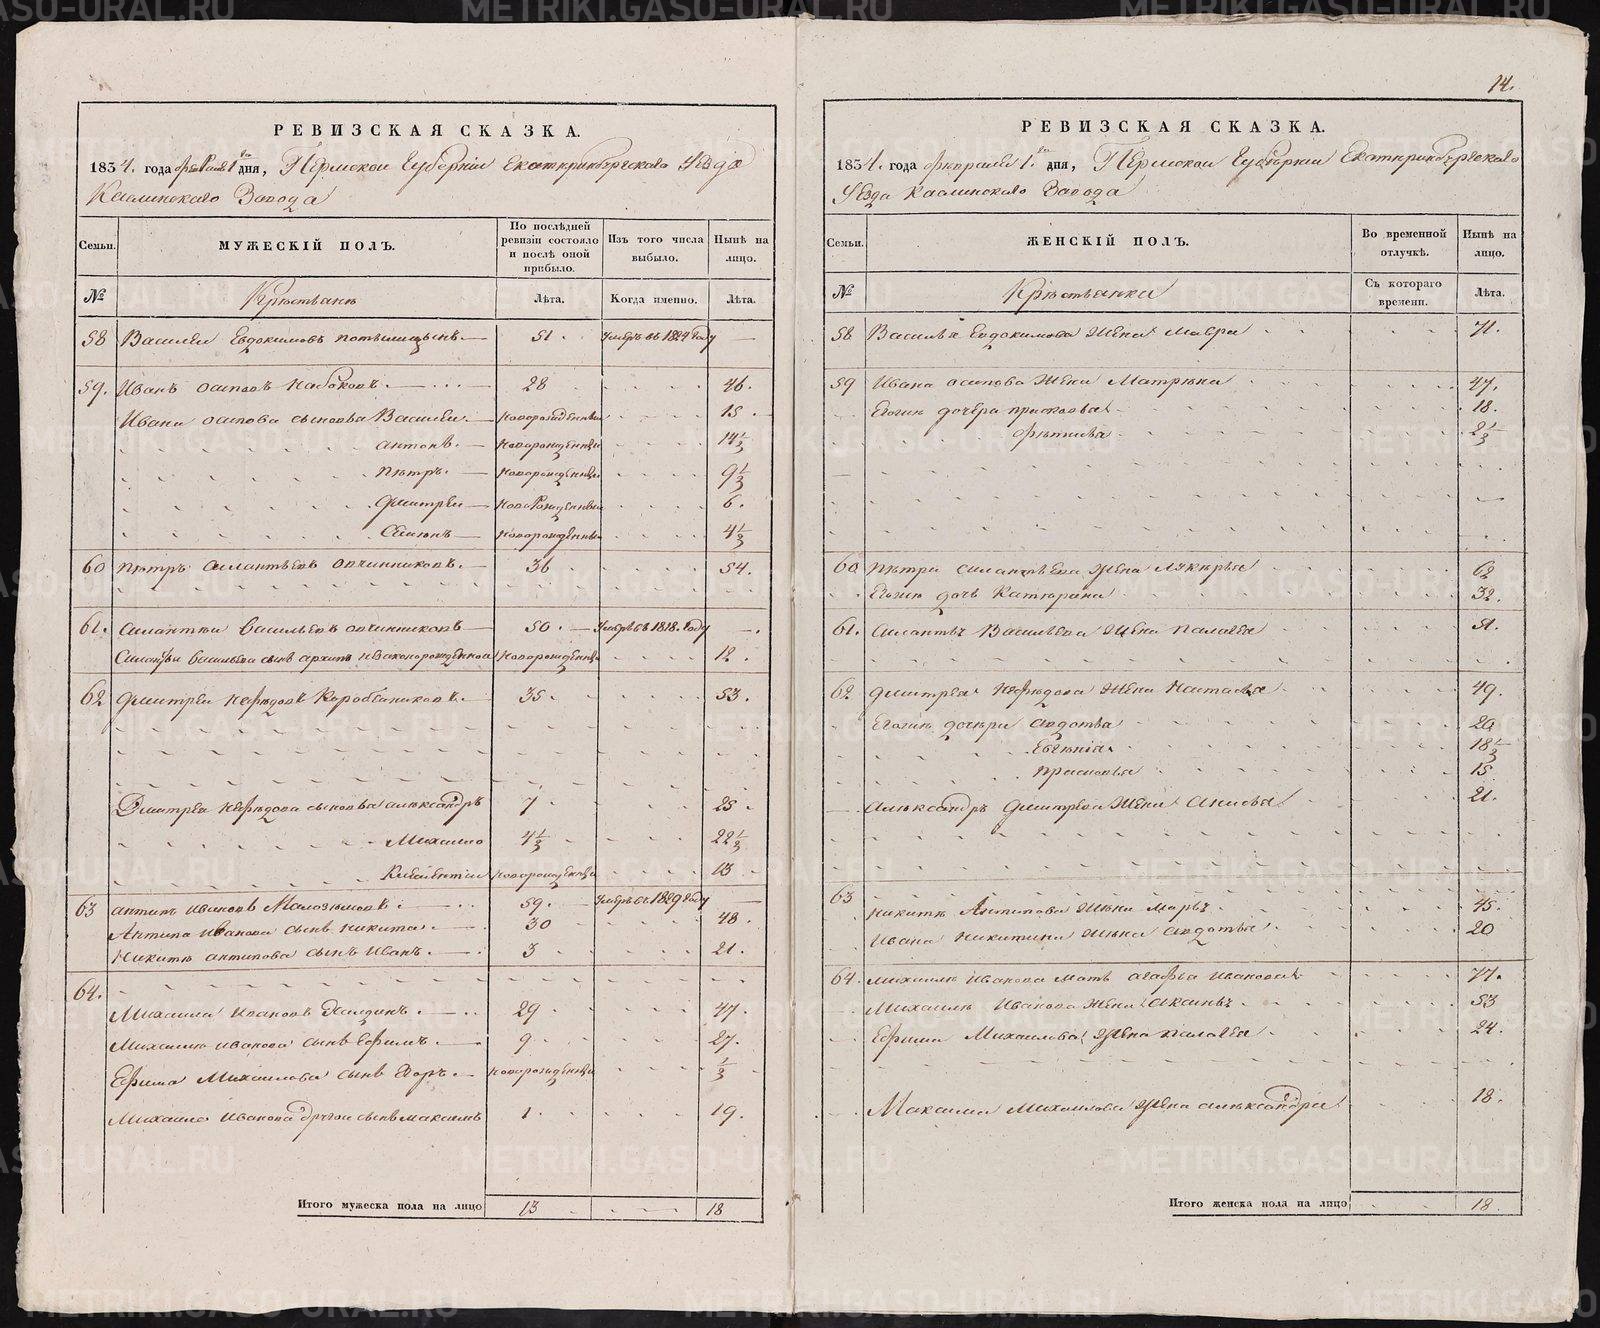 14.
РЕВИЗСКАЯ СКАЗКА.
1834. года февраля 1 дня, Пермской Губернии Екатеринбургскаго Уезда
Каслинскаго Завода
Семьи. МУЖЕСКІЙ ПОЛЪ. По послѣдней ревизіи состояло и послѣ оной прибыло. Изъ того числа выбыло. Нынѣ на лицо.
№ Крестьяне Лѣта. Когда именно. Лѣта.
58 Василеи Евдокимовъ 51. Умеръ въ 1824 году
59. Иванъ осиповъ Набоковъ. 28 46.
Ивана осипова сыновья Василеи. новорожденныи 15
антонъ. новорожденныи 14 1/3
петръ. новорожденныи 9 1/3
Дмитреи новорожденныи 6.
Семенъ новорожденныи 4 1/3
60 петръ силантьевъ овчинниковъ. 36 54.
61. силантеи васильевъ овчинниковъ 50. Умеръ въ 1818. году
Силантья васильева сынъ архипъ незаконорожденной новорожденныи 12.
62 дмитреи нефедовъ Коробейниковъ. 35 53.
Дмитрея нефедова сыновья александръ 7 25
Михаило 4 1/3 22 1/3
новорожденныи 13
63 антипъ ивановъ Малоземовъ. 59. Умеръ въ 1829 году
Антипа Иванова сынъ никита. 30 48.
Никиты антипова сынъ Иванъ. 3 21.
64.
Михаила ивановъ 29 47.
Михаила иванова сынъ Ефимъ. 9 27.
Ефима Михаилова сынъ новорожденныи 1/3
Михаила иванова другои сынъ максимъ 1. 19.
Итого мужеска пола на лицо 13 18
РЕВИЗСКАЯ СКАЗКА.
1834. года февраля 1. дня, Пермской Губернии Екатеринбургскаго
Уезда Каслинскаго Завода
Семьи. ЖЕНСКІЙ ПОЛЪ. Во временной отлучкѣ. Нынѣ на лицо.
№ Крестьянки Съ котораго времени. Лѣта.
58 Василья Евдокимова жена Мавра 71.
59 Ивана осипова жена Матрена 47.
Егоже дочери прасковья 18.
фетинья 2 1/3
60 петра силантьева жена лукерья 62
Егоже дочь Катерина 32.
61. Силантья Васильева жена палагея 51.
62 дмитрея нефедова жена настасья 49.
Егоже дочери авдотья 20
Евгения 18 1/3
прасковья 15
александра дмитрева жена анисья 21.
63
никиты Антипова жена марья 45.
Ивана Никитина жена авдотья 20
64. михаила иванова мать агафья иванова 77.
Михаила Иванова жена 53
Ефима Михаилова жена палагея 24.
Максима Михаилова жена александра 18.
Итого женска пола на лицо 18.
METRIKI.GASO-URAL.RU